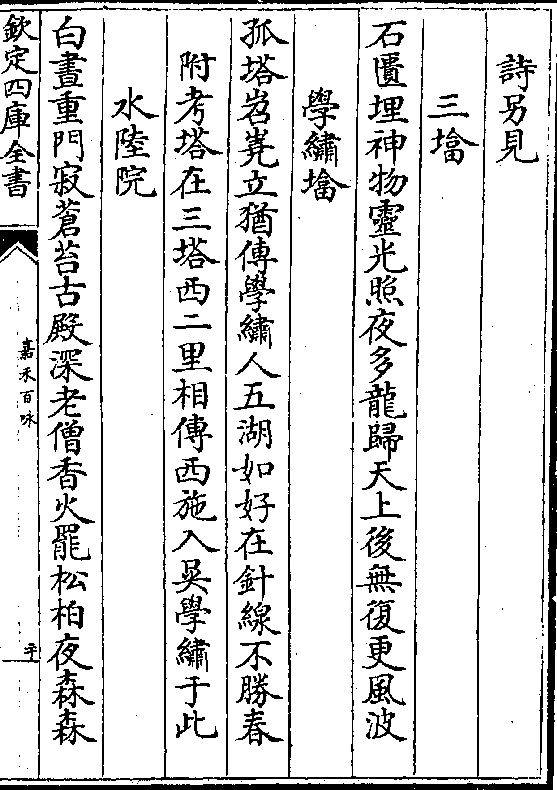 詩另見
三墖
石匱埋神物靈光照夜多龍歸天上後無復更風波
學繡墖
孤塔岧嶤立猶傳學繡人五湖如好在針線不勝春
附考塔在三塔西二里相傳西施入吳學繡于此
水陸院
白晝重門寂蒼苔古殿深老僧香火罷松柏夜森森
欽定四庫全書
嘉禾百咏